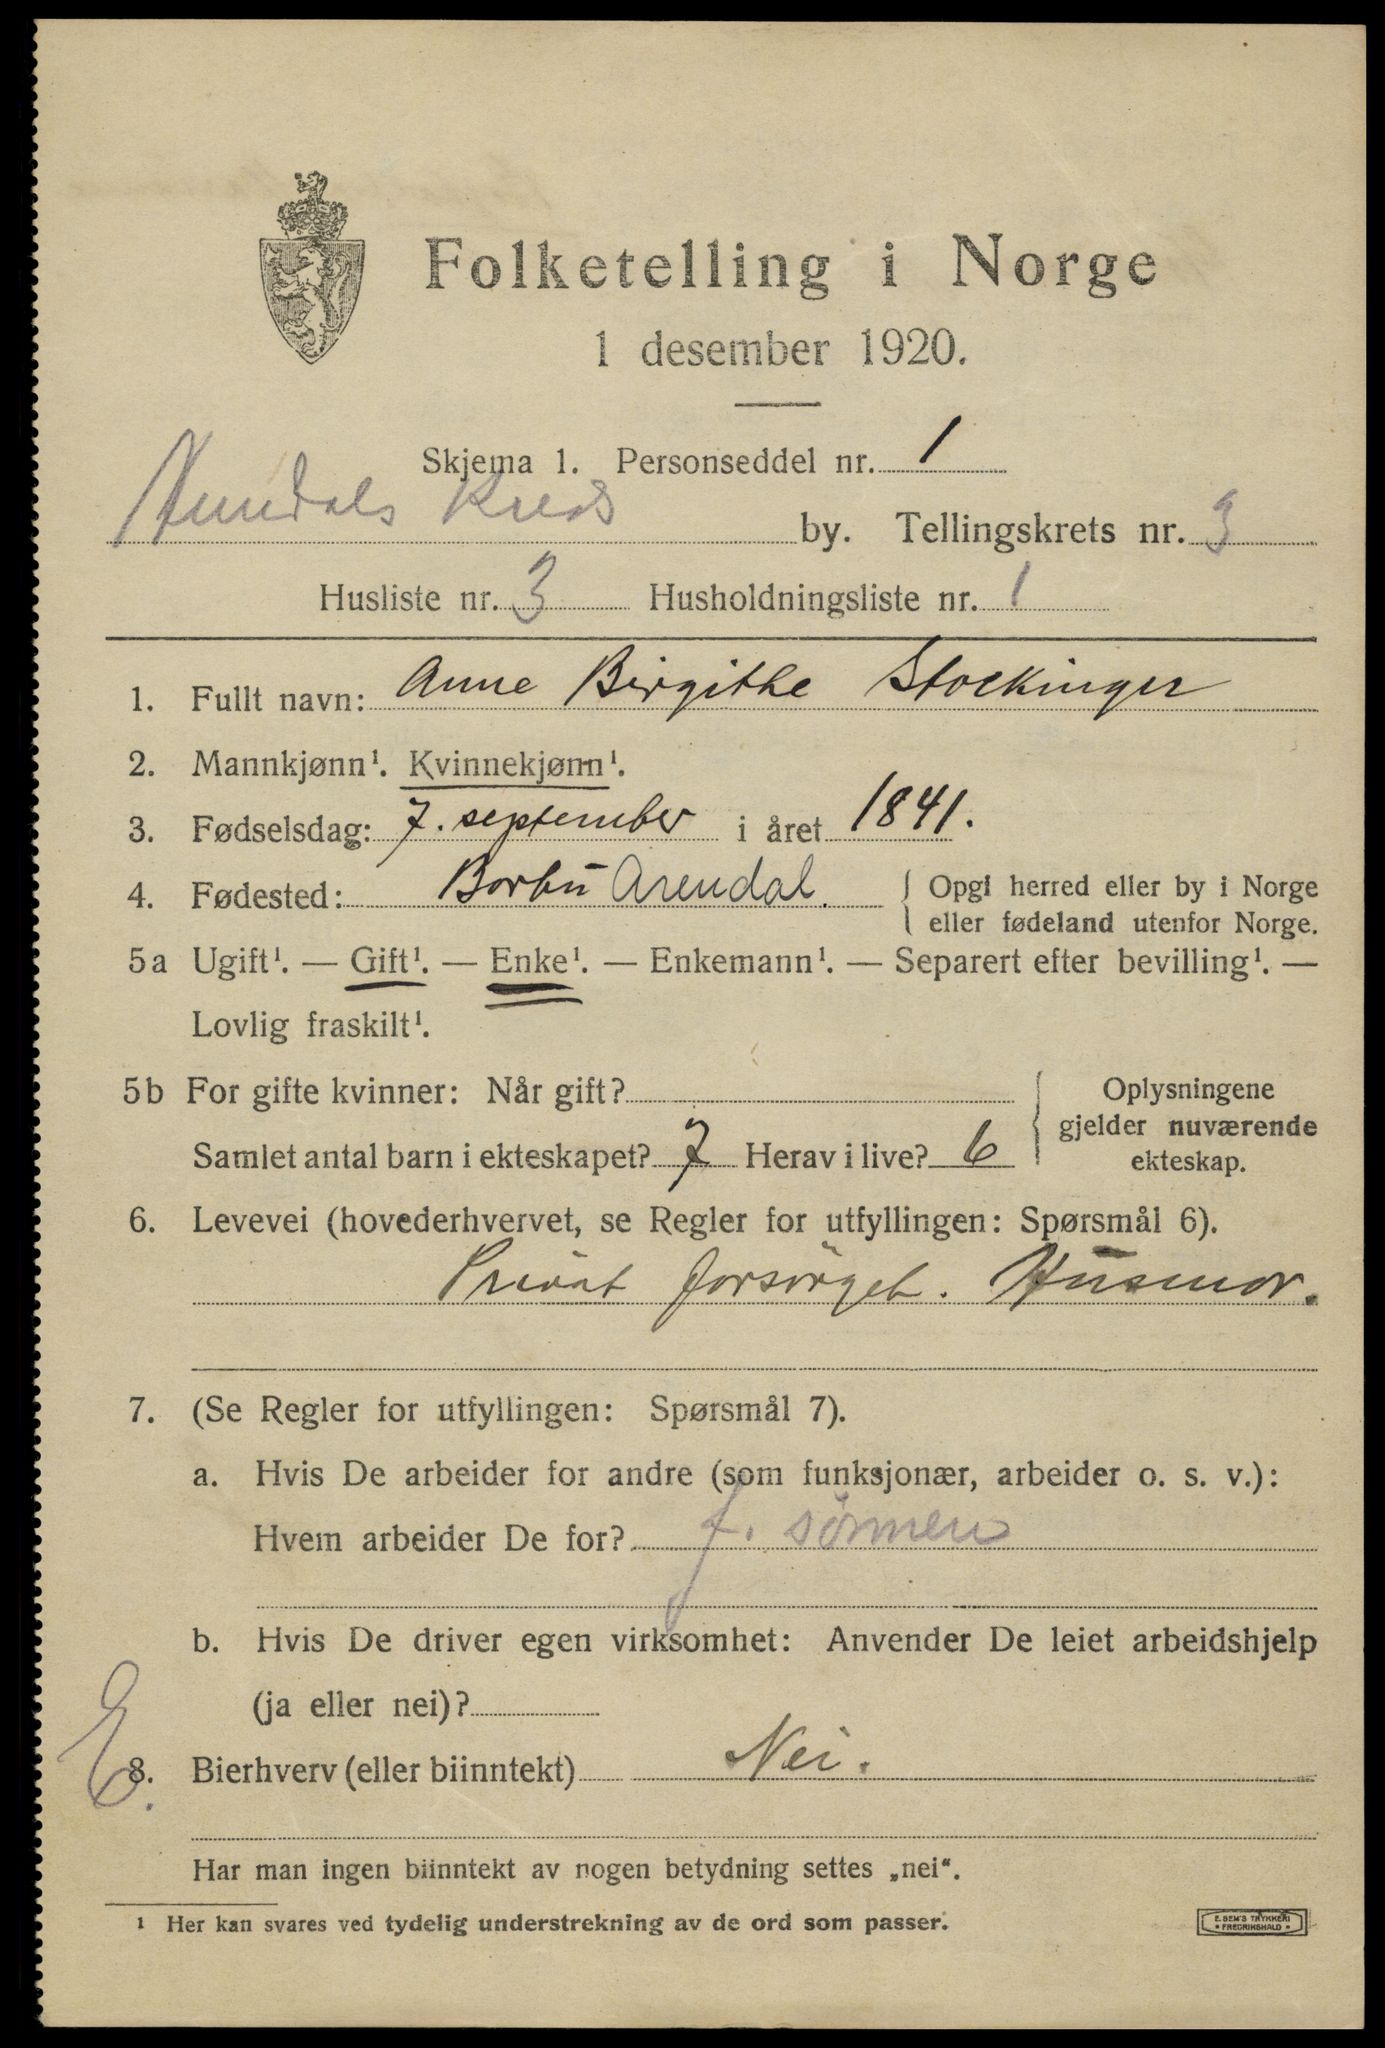 Folketelling i Norge
1 desember 1920.
Skjema 1. Personseddel nr. 1
Kreds by. Tellingskrets nr. 3
Husliste nr. 3 Husholdningsliste nr. 1
1. Fullt navn: Anne Birgithe Stockinger
2. Mannkjønn¹. Kvinnekjønn¹.
3. Fødselsdag: 7. september i året 1841.
4. Fødested: Barbu Arendal. Opgi herred eller by i Norge
eller fødeland utenfor Norge.
5a Ugift¹. — Gift¹. — Enke¹. — Enkemann¹. — Separert efter bevilling¹. —
Lovlig fraskilt¹.
5b For gifte kvinner: Når gift?
Samlet antal barn i ekteskapet? 7 Herav i live? 6
Oplysningene
gjelder nuværende
ekteskap.
6. Levevei (hovederhvervet, se Regler for utfyllingen: Spørsmål 6).
Privat forsörget. Husmor.
7. (Se Regler for utfyllingen: Spørsmål 7).
a. Hvis De arbeider for andre (som funksjonær, arbeider o. s. v.):
Hvem arbeider De for? f. sönnen
b. Hvis De driver egen virksomhet: Anvender De leiet arbeidshjelp
(ja eller nei)?
E.
8. Bierhverv (eller biinntekt) Nei.
Har man ingen biinntekt av nogen betydning settes „nei“.
1 Her kan svares ved tydelig understrekning av de ord som passer.
E. SEM'S TRYKKERI
• FREDRIKSHALD •